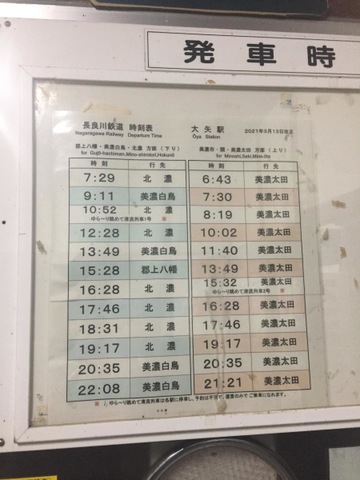 発車時
長良川鉄道 時刻表
Nagaragawa Railway Departure Time
大矢駅
Oya Station
2021年3月13日改正
郡上八幡・美濃白鳥・北濃 方面 (下り)
for Gujō-hachiman,Mino-shirotori,Hokunō
美濃市・関・美濃太田 方面 (上り)
for Minoshi,Seki,Mino-ōta
時刻 行先 時刻 行先
7:29 北濃 6:43 美濃太田
9:11 美濃白鳥 7:30 美濃太田
10:52 北濃 8:19 美濃太田
ゆら〜り眺めて清流列車1号 ※
12:28 北濃 10:02 美濃太田
13:49 美濃白鳥 11:40 美濃太田
15:28 郡上八幡 13:49 美濃太田
16:28 北濃 15:32 美濃太田
ゆら〜り眺めて清流列車2号 ※
17:46 北濃 16:28 美濃太田
18:31 北濃 17:46 美濃太田
19:17 北濃 19:17 美濃太田
20:35 美濃白鳥 20:35 美濃太田
22:08 美濃白鳥 21:21 美濃太田
※ ゆら〜り眺めて清流列車は各駅に停車し、予約は不要で、運賃のみでご乗車になれます。